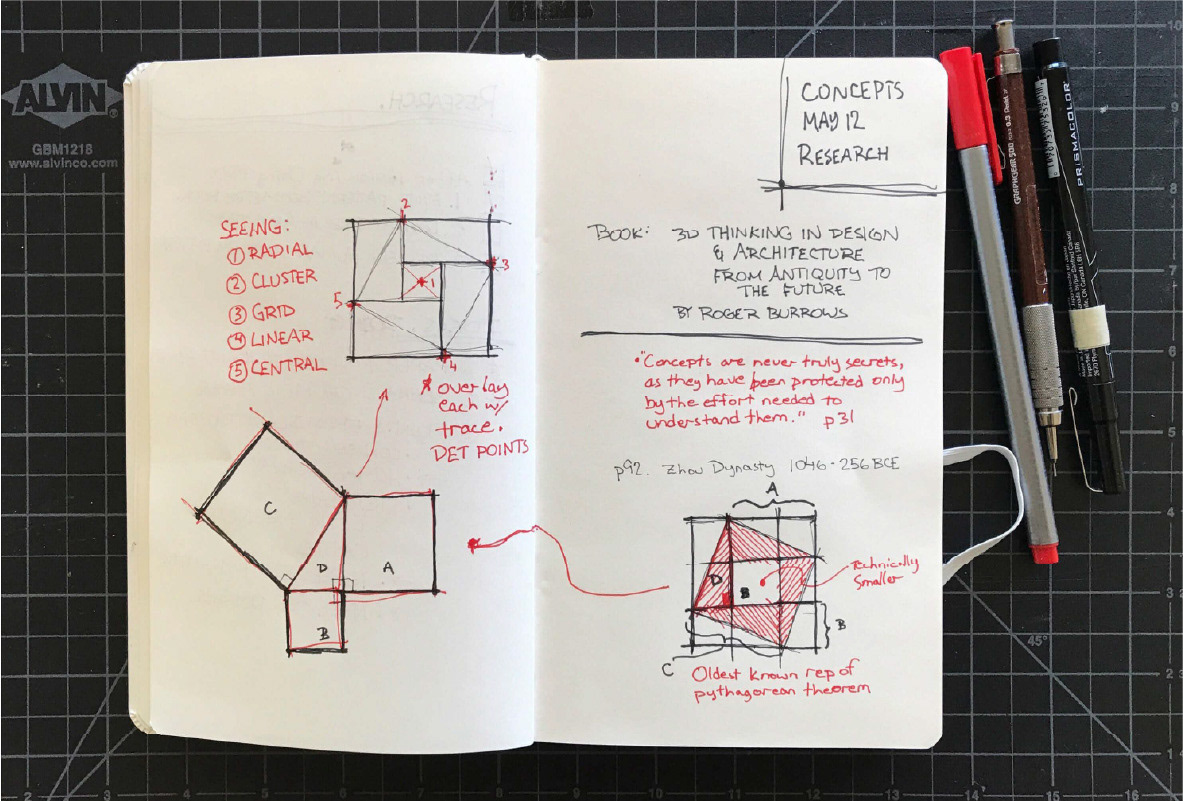 ALVIN
GBM1218
www.alvinco.com
RESEARCH.
SEEING:
1 RADIAL
2 CLUSTER
3 GRID
4 LINEAR
5 CENTRAL
2
3
1
5
4
* overlay
each w/
trace.
DET POINTS
C
D
A
B
CONCEPTS
MAY 12
RESEARCH
BOOK: 3D THINKING IN DESIGN
& ARCHITECTURE
FROM ANTIQUITY TO
THE FUTURE
BY ROGER BURROWS
• "Concepts are never truly secrets,
as they have been protected only
by the effort needed to
understand them." p31
p92. Zhou Dynasty 1046-256 BCE
A
D
B
Technically
Smaller
B
C
Oldest known rep of
pythagorean theorem
GRAPHGEAR 500
PRISMACOLOR
10
9
8
7
6
5
4
3
2
1
45°
3
4
5
6
7
8
9
10
11
12
13
14
15
16